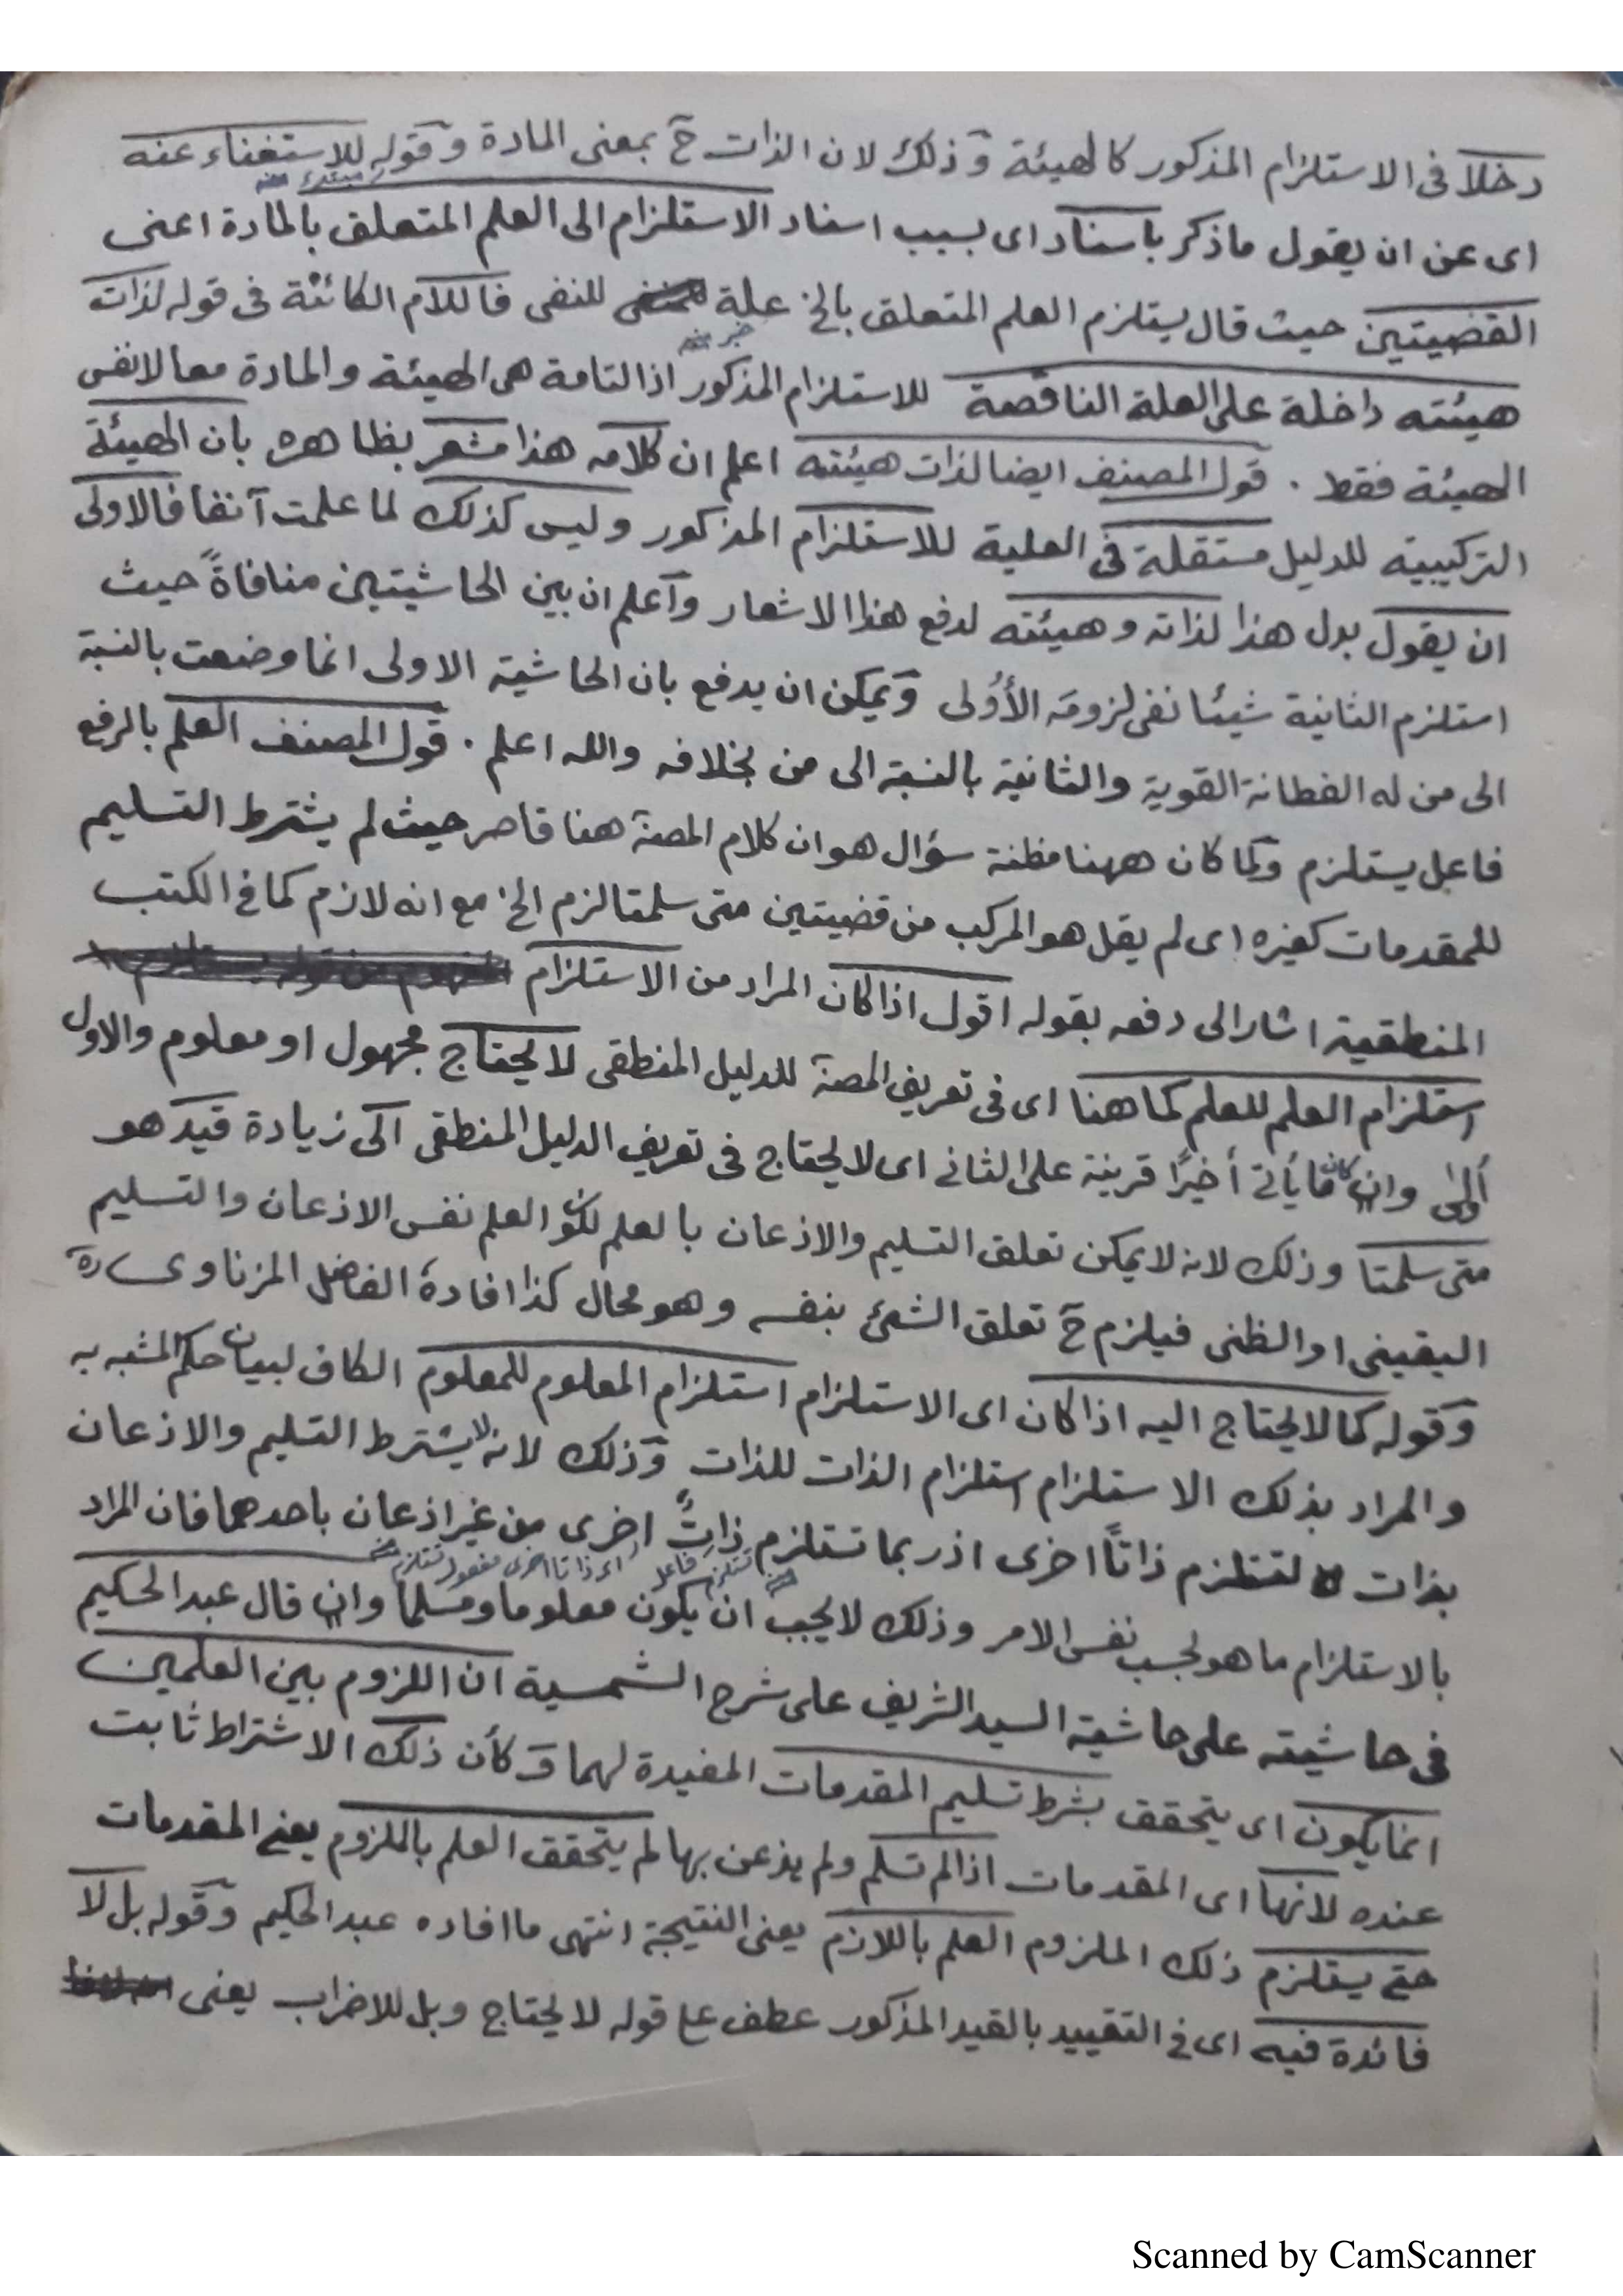 دخلا فى الاستلزام المذكور كالهيئة وذلك لان الذات ح بمعنى المادة وقوله للاستغناء عنه
مبتدء منه
اى عن ان يقول ماذكر باسناد اى بسبب اسناد الاستلزام الى العلم المتعلق بالمادة اعنى
القضيتين حيث قال يستلزم العلم المتعلق بالخ علة للنفى فاللام الكائنة فى قوله لذات
خبر منه
هيئته داخلة على العلة الناقصة للاستلزام المذكور اذ التامة هى الهيئة والمادة معا لانفس
الهيئة فقط . قول المصنف ايضا لذات هيئته اعلم ان كلامه هذا مشعر بظاهره بان الهيئة
التركيبية للدليل مستقلة فى العلية للاستلزام المذكور وليس كذلك لما علمت آنفا فالاولى
ان يقول بدل هذا لذاته وهيئته لدفع هذا الاشعار وآعلم ان بين الحاشيتين منافاةً حيث
استلزم الثانية شيئا نفى لزومَه الأُولى ويمكن ان يدفع بان الحاشية الاولى انما وضعت بالنسبة
الى من له الفطانة القوية والثانية بالنسبة الى من بخلافه والله اعلم . قول المصنف العلم بالرفع
فاعل يستلزم ولما كان ههنا مظنة سؤال هو ان كلام المصنآ هنا قاصر حيث لم يشترط التسليم
للمقدمات كغيره اى لم يقل هو المركب من قضيتين متى سلمتا لزم الخ مع انه لازم كما فى الكتب
المنطقية اشار الى دفعه بقوله اقول اذا كان المراد من الاستلزام
استلزام العلم للعلم كما هنا اى فى تعريف المصنآ للدليل المنطقى لا يحتاج مجهول او معلوم والاول
أولىٰ وان كان ما يأتى أخيرًا قرينة على الثانى اى لا يحتاج فى تعريف الدليل المنطقى الى زيادة قيد هو
متى سلمتا وذلك لانه لا يمكن تعلق التسليم والاذعان بالعلم لكون العلم نفس الاذعان والتسليم
اليقينى او الظنى فيلزم ح تعلق الشئ بنفسه وهو محال كذا افادهُ الفاضل المزناوى
وقوله كما لا يحتاج اليه اذا كان اى الاستلزام استلزام المعلوم للمعلوم الكاف لبيان حكم المشبه به
والمراد بذلك الاستلزام استلزام الذات للذات وذلك لانه لا يشترط التسليم والاذعان
بذات لتستلزم ذاتاً اخرى اذ ربما تستلزم ذاتٌ اخرى من غير اذعان باحدهما فان المراد
تستلزم فاعل اى ذاتا اخرى مفعول تستلزم منه
بالاستلزام ما هو بحسب نفس الامر وذلك لا يجب ان يكون معلوما ومسلما وان قال عبد الحكيم
فى حاشيته على حاشية السيد الشريف على شرح الشمسية ان اللزوم بين العلمين
انما يكون اى يتحقق بشرط تسليم المقدمات المفيدة لهما وكأن ذلك الاشتراط ثابت
عنده لانها اى المقدمات اذا لم تسلم ولم يذعن بها لم يتحقق العلم بالملزوم يعنى المقدمات
حتى يستلزم ذلك الملزوم العلم باللازم يعنى النتيجة انتهى ما افاده عبد الحكيم وقوله بل لا
فائدة فيه اى فى التقييد بالقيد المذكور عطف على قوله لا يحتاج وبل للاضراب يعنى
Scanned by CamScanner